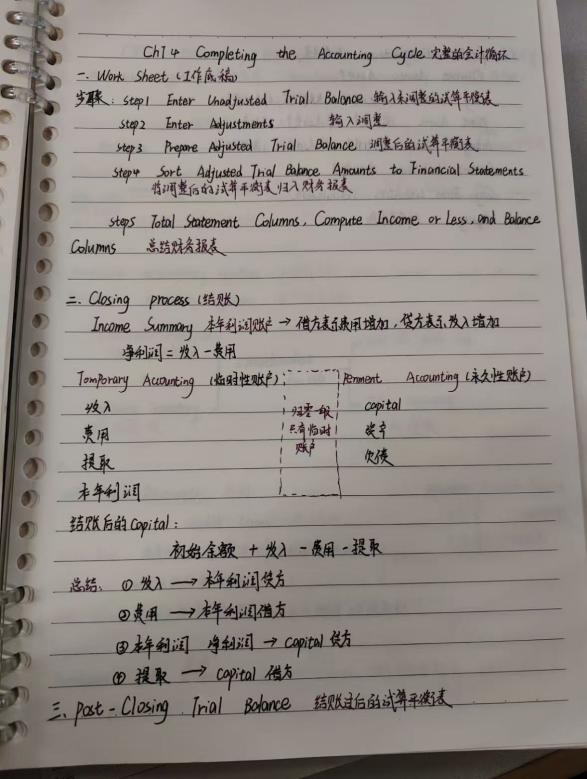 Ch14 Completing the Accounting Cycle 完整的会计循环
一、Work Sheet（工作底稿）
步骤：Step1 Enter Unadjusted Trial Balance 输入未调整的试算平衡表
Step2 Enter Adjustments 输入调整
Step3 Prepare Adjusted Trial Balance 调整后的试算平衡表
Step4 Sort Adjusted Trial Balance Amounts to Financial Statements
将调整后的试算平衡表归入财务报表
Step5 Total Statement Columns, Compute Income or Less, and Balance
Columns 总结财务报表
二、Closing process（结账）
Income Summary 本年利润账户 → 借方表示费用增加，贷方表示收入增加
净利润 = 收入 - 费用
Tomporary Accounting（临时性账户） Perment Accounting（永久性账户）
收入 归零一般 capital
费用 只有临时 资产
提取 账户 欠债
本年利润
结账后的Capital：
初始余额 + 收入 - 费用 - 提取
总结：① 收入 → 本年利润贷方
② 费用 → 本年利润借方
③ 本年利润 净利润 → Capital 贷方
④ 提取 → Capital 借方
三、Post-Closing Trial Balance 结账过后的试算平衡表